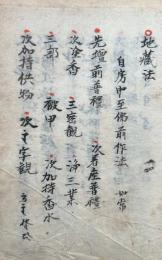 地蔵法
自房中至佛前作法 如常
先壇前普禮 次着座普禮
次塗香 三密観 浄三業
三部 被甲 次加持香水
次加持供物 次字観